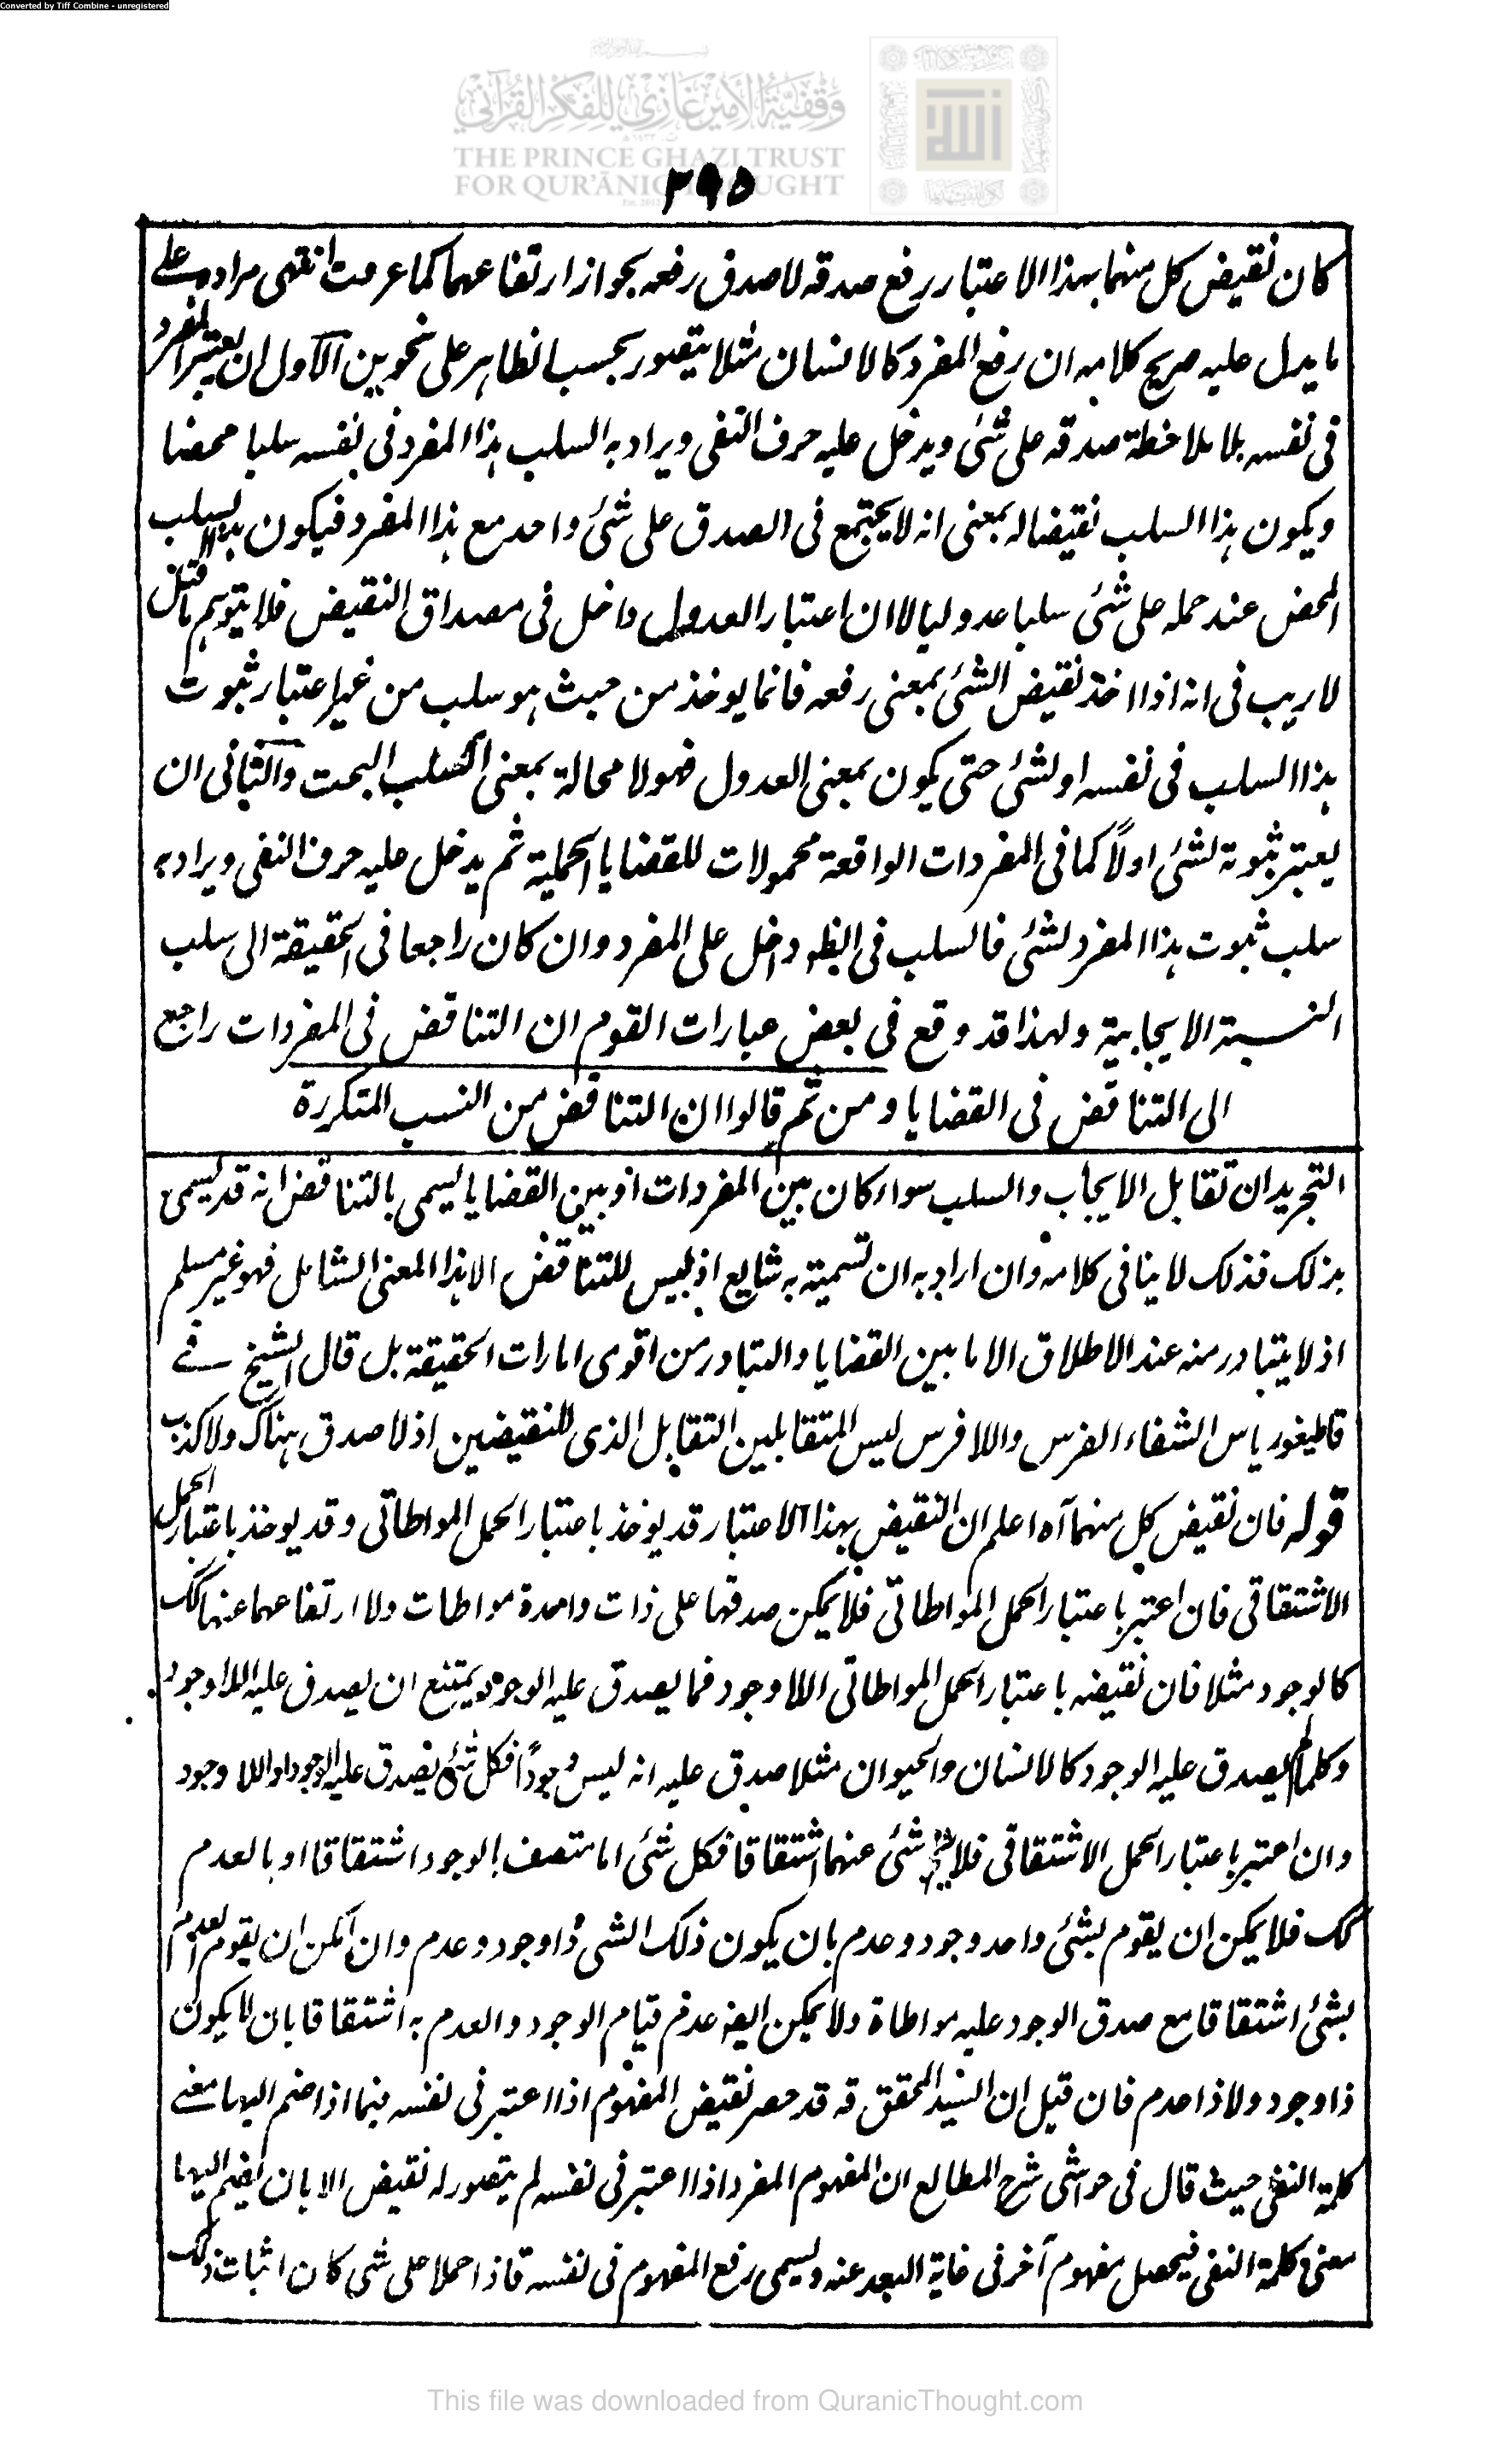 Converted by Tiff Combine - unregistered
وقفية الأمير غازي للفكر القرآني
THE PRINCE GHAZI TRUST
FOR QUR'ĀNIC THOUGHT
٢٩٥
كان نقيض كل منهما بهذا الاعتبار رفع صدقه لا صدق رفعه بجواز ارتفاعهما كما عرفت انتهى مراده على
ما يدل عليه صريح كلامه ان رفع المفرد كالانسان مثلا يتصور بحسب الظاهر على نحوين الاول ان يعتبر المفرد
فى نفسه بلا ملاحظة صدقه على شئ ويدخل عليه حرف النفى ويراد به السلب هذا المفرد فى نفسه سلبا محضا
ويكون هذا السلب نقيضا له بمعنى انه لا يجتمع فى الصدق على شئ واحد مع هذا المفرد فيكون هذا السلب
المحض عند حمله على شئ سلبا عدوليا لا ان اعتبار العدول داخل فى مصداق النقيض فلا يتوهم ما قيل
لا ريب فى انه اذا اخذ نقيض الشئ بمعنى رفعه فانما يوخذ من حيث هو سلب من غير اعتبار ثبوت
هذا السلب فى نفسه او لشئ حتى يكون بمعنى العدول فهو لا محالة بمعنى السلب البحت والثانى ان
يعتبر ثبوته لشئ اولاً كما فى المفردات الواقعة محمولات للقضايا الحملية ثم يدخل عليه حرف النفى ويراد به
سلب ثبوت هذا المفرد لشئ فالسلب فى الظاهر داخل على المفرد وان كان راجعا فى الحقيقة الى سلب
النسبة الايجابية ولهذا قد وقع فى بعض عبارات القوم ان التناقض فى المفردات راجع
الى التناقض فى القضايا ومن ثم قالوا ان التناقض من النسب المتكررة
التجريد ان تقابل الايجاب والسلب سواء كان بين المفردات او بين القضايا يسمى بالتناقض انه قد يسمى
بذلك فذلك لا ينافى كلامه وان اراد به ان تسميته به شايع اذ ليس للتناقض الا هذا المعنى الشامل فهو غير مسلم
اذ لا يتبادر منه عند الاطلاق الا ما بين القضايا والتبادر من اقوى امارات الحقيقة بل قال الشيخ فى
قاطيغورياس الشفاء الفرس واللافرس ليس المتقابلين التقابل الذى للنقيضين اذ لا صدق هناك ولا كذب
قوله فان نقيض كل منهما آه اعلم ان النقيض بهذا الاعتبار قد يوخذ باعتبار الحمل المواطاتى وقد يوخذ باعتبار الحمل
الاشتقاقى فان اعتبر باعتبار الحمل المواطاتى فلا يمكن صدقهما على ذات واحدة مواطات ولا ارتفاعهما عنها كك
كالوجود مثلا فان نقيضه باعتبار الحمل المواطاتى اللاوجود فما يصدق عليه الوجود يمتنع ان يصدق عليه اللاوجود
وكلما لم يصدق عليه الوجود كالانسان والحيوان مثلا صدق عليه انه ليس وجوداً فكل شئ يصدق عليه الوجود او اللاوجود
وان اعتبر باعتبار الحمل الاشتقاقى فلا شئ عنهما اشتقاقا فكل شئ اما متصف بالوجود اشتقاقا او بالعدم
كك فلا يمكن ان يقوم بشئ واحد وجود وعدم بان يكون ذلك الشئ ذا وجود وعدم وان امكن ان يقوم العدم
بشئ اشتقاقا مع صدق الوجود عليه مواطاة ولا يمكن ايضا عدم قيام الوجود والعدم به اشتقاقا بان لا يكون
ذا وجود ولا ذا عدم فان قيل ان السيد المحقق قه قد حصر نقيض المفهوم اذا اعتبر فى نفسه فيما اذا ضم اليها معنى
كلمة النفى حيث قال فى حواشى شرح المطالع ان المفهوم المفرد اذا اعتبر فى نفسه لم يتصور له نقيض الا بان يضم اليها
معنى كلمة النفى فيحصل مفهوم آخر فى غاية البعد عنه ويسمى رفع المفهوم فى نفسه فاذا حملا على شئ كان اثبات ذلك
This file was downloaded from QuranicThought.com